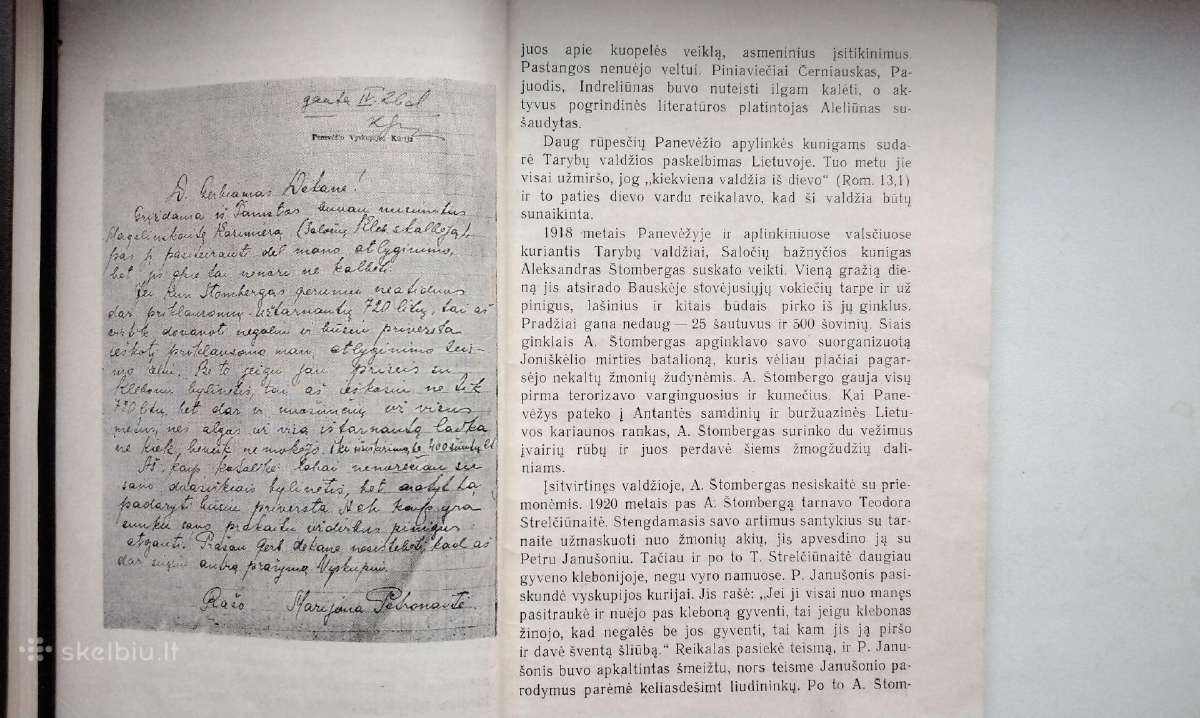 gauta IV.26d
Panevėžio Vyskupijos Kurija
D. Gerbiamas Dekane!
Grįždama iš Tamstos buvau
Kazimierą (Saločių
pas jį pasiteirauti dėl mano atlyginimo,
bet jis apie tai nenori nė kalbėti.
Jei kun Štombergas geruoju neatiduos
dar priklausomų uštarnautų 720 litų, tai aš
dovanoti negaliu ir būsiu priversta
ieškoti priklausomą man atlyginimo
Be to jeigu jau prieis su
klebonu bylinėtis, tai aš ieškosiu ne tik
720 litų, bet dar ir nuošimčių už visus
metus, nes algos už visą ištarnautą laiką
ne kiek beveik ne mokėjo.
Aš kaip katalikė labai nenorėčiau su
savo dvasiškiais bylinėtis, bet
padaryti būsiu priversta. Ach kaip yra
sunku savo prakaitu uždirbtus pinigus
atgauti. Prašau Gerb. dekane nesistebėti, kad aš
dar siunčiu antrą prašymą Vyskupui.
Rašo Marijona Petronaitė.
skelbiu.lt
juos apie kuopelės veiklą, asmeninius įsitikinimus.
Pastangos nenuėjo veltui. Piniaviečiai Černiauskas, Pa-
juodis, Indreliūnas buvo nuteisti ilgam kalėti, o ak-
tyvus pogrindinės literatūros platintojas Aleliūnas su-
šaudytas.
Daug rūpesčių Panevėžio apylinkės kunigams suda-
rė Tarybų valdžios paskelbimas Lietuvoje. Tuo metu jie
visai užmiršo, jog „kiekviena valdžia iš dievo“ (Rom. 13,1)
ir to paties dievo vardu reikalavo, kad ši valdžia būtų
sunaikinta.
1918 metais Panevėžyje ir aplinkiniuose valsčiuose
kuriantis Tarybų valdžiai, Saločių bažnyčios kunigas
Aleksandras Štombergas suskato veikti. Vieną gražią die-
ną jis atsirado Bauskėje stovėjusiųjų vokiečių tarpe ir už
pinigus, lašinius ir kitais būdais pirko iš jų ginklus.
Pradžiai gana nedaug — 25 šautuvus ir 500 šovinių. Šiais
ginklais A. Štombergas apginklavo savo suorganizuotą
Joniškėlio mirties batalioną, kuris vėliau plačiai pagar-
sėjo nekaltų žmonių žudynėmis. A. Štombergo gauja visų
pirma terorizavo varginguosius ir kumečius. Kai Pane-
vėžys pateko į Antantės samdinių ir buržuazinės Lietu-
vos kariaunos rankas, A. Štombergas surinko du vežimus
įvairių rūbų ir juos perdavė šiems žmogžudžių dali-
niams.
Įsitvirtinęs valdžioje, A. Štombergas nesiskaitė su prie-
monėmis. 1920 metais pas A. Štombergą tarnavo Teodora
Strelčiūnaitė. Stengdamasis savo artimus santykius su tar-
naite užmaskuoti nuo žmonių akių, jis apvesdino ją su
Petru Janušoniu. Tačiau ir po to T. Strelčiūnaitė daugiau
gyveno klebonijoje, negu vyro namuose. P. Janušonis pasi-
skundė vyskupijos kurijai. Jis rašė: „Jei ji visai nuo manęs
pasitraukė ir nuėjo pas kleboną gyventi, tai jeigu klebonas
žinojo, kad negalės be jos gyventi, tai kam jis ją piršo
ir davė šventą šliūbą.“ Reikalas pasiekė teismą, ir P. Janu-
šonis buvo apkaltintas šmeižtu, nors teisme Janušonio pa-
rodymus parėmė keliasdešimt liudininkų. Po to A. Štom-